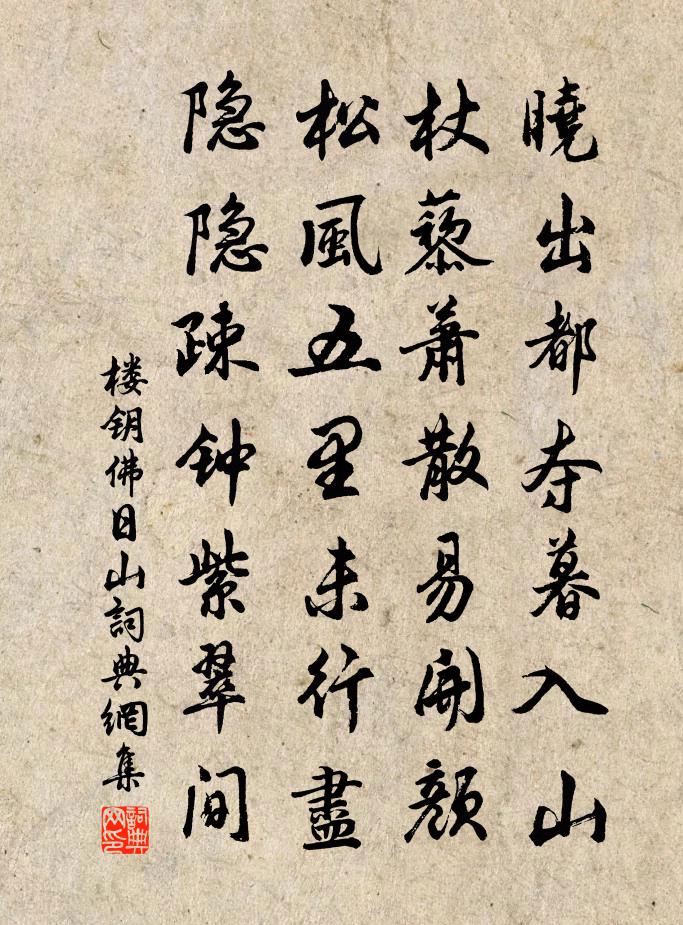 曉出都夺暮入山
杖藜蕭散易開顔
松風五里未行盡
隐隐疎钟紫翠间
楼钥佛日山詞典網集
詞典网印